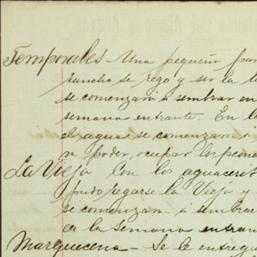 Temporales - Una pequeña par
rancho se rego y ser la t
se comenzara a sembrar en
semana entrante. En l
el agua se comenzara
a poder, ocupar los peone
La Vieja Con los aguaceros
pudo regarse la Vieja y
se comenzara a sembrar
de la semana entran
Marquecena - Se le entreg